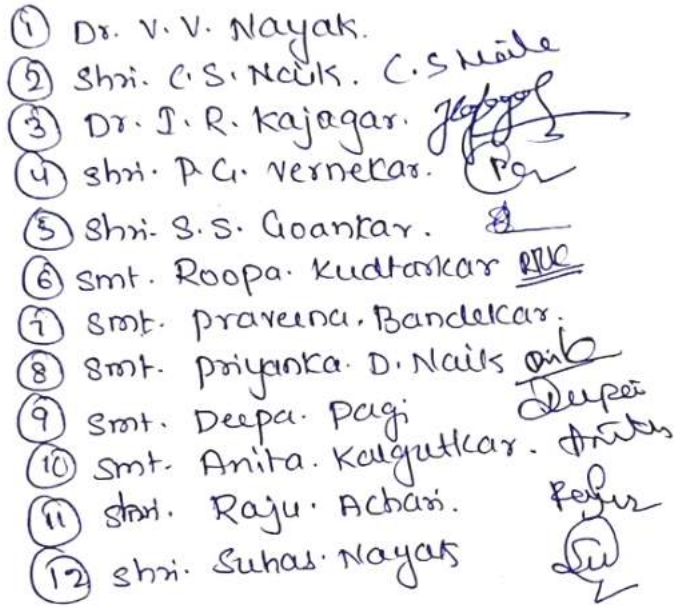 ① Dr. V. V. Nayak.
② Shri. C. S. Naik. C. S Naik
③ Dr. I. R. Kajagar.
④ Shri. P. G. Vernekar.
⑤ Shri. S. S. Goankar.
⑥ Smt. Roopa. Kudtarkar RRK
⑦ Smt. Praveena. Bandekar.
⑧ Smt. Priyanka. D. Naik
⑨ Smt. Deepa. Pagi Deepa
⑩ Smt. Anita. Kalgutkar. Anita
⑪ Shri. Raju. Achari.
⑫ Shri. Suhas. Nayak